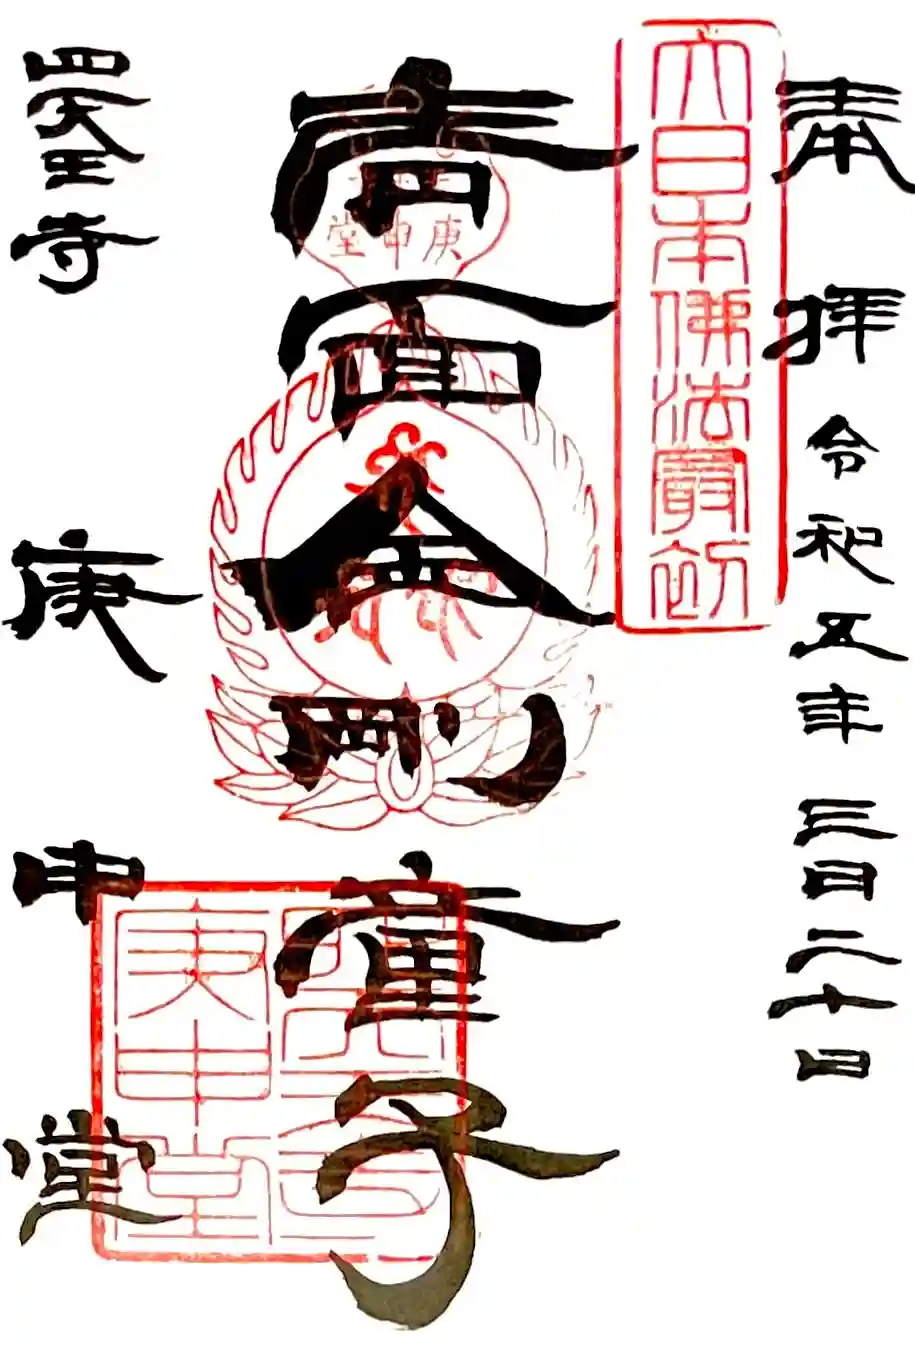 奉拝 令和五年三月二十日
大日本佛法最初
青面金剛童子
庚申堂
四天王寺 庚申堂
四天王寺
庚申堂